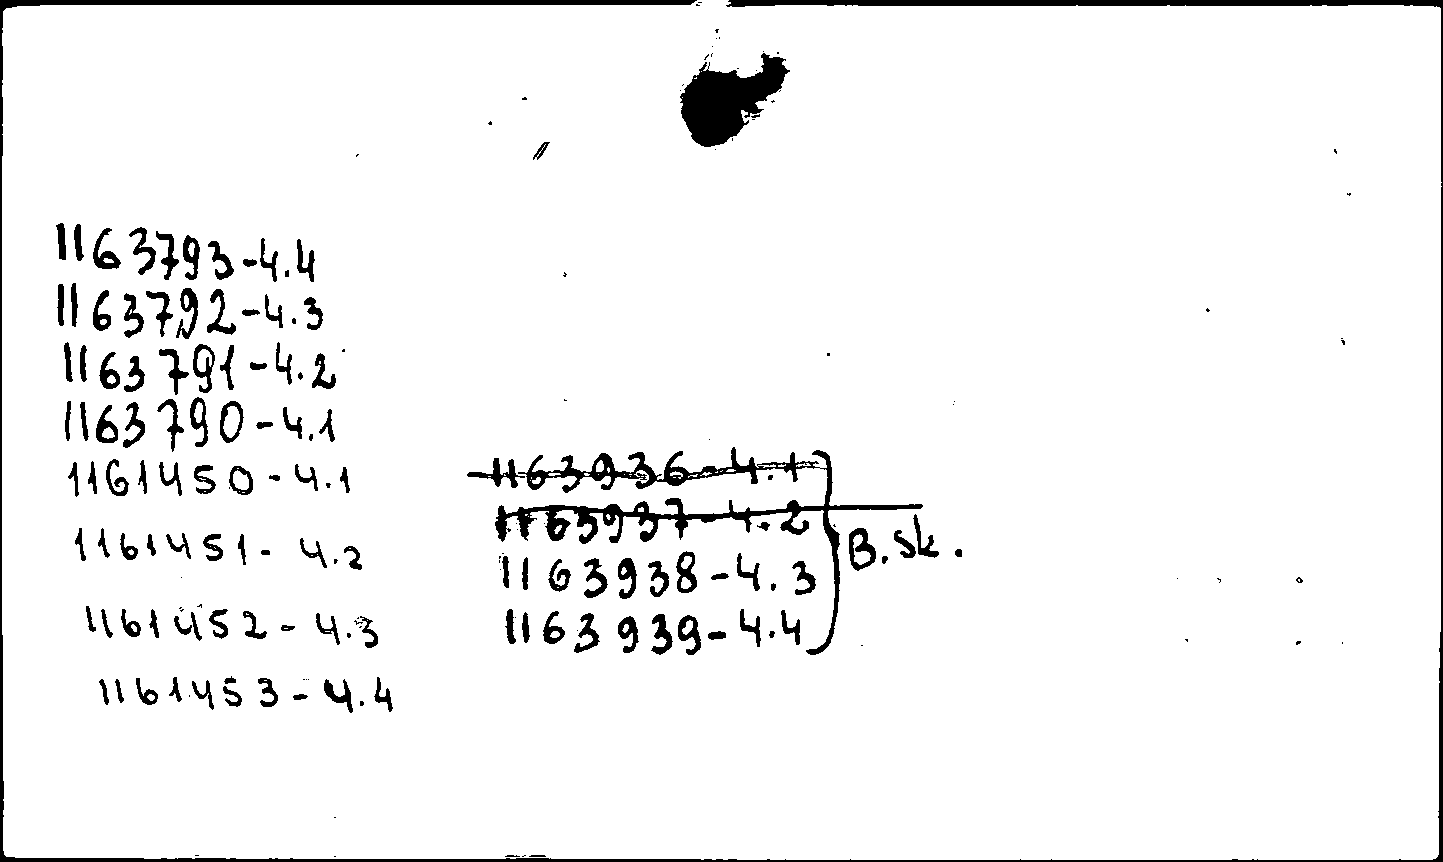 1163793-4.4
1163792-4.3
1163791-4.2
1163790-4.1
1161450-4.1
1161451-4.2
1161452-4.3
1161453-4.4
1163936-4.1
1163937-4.2
1163938-4.3
1163939-4.4
B.sk.